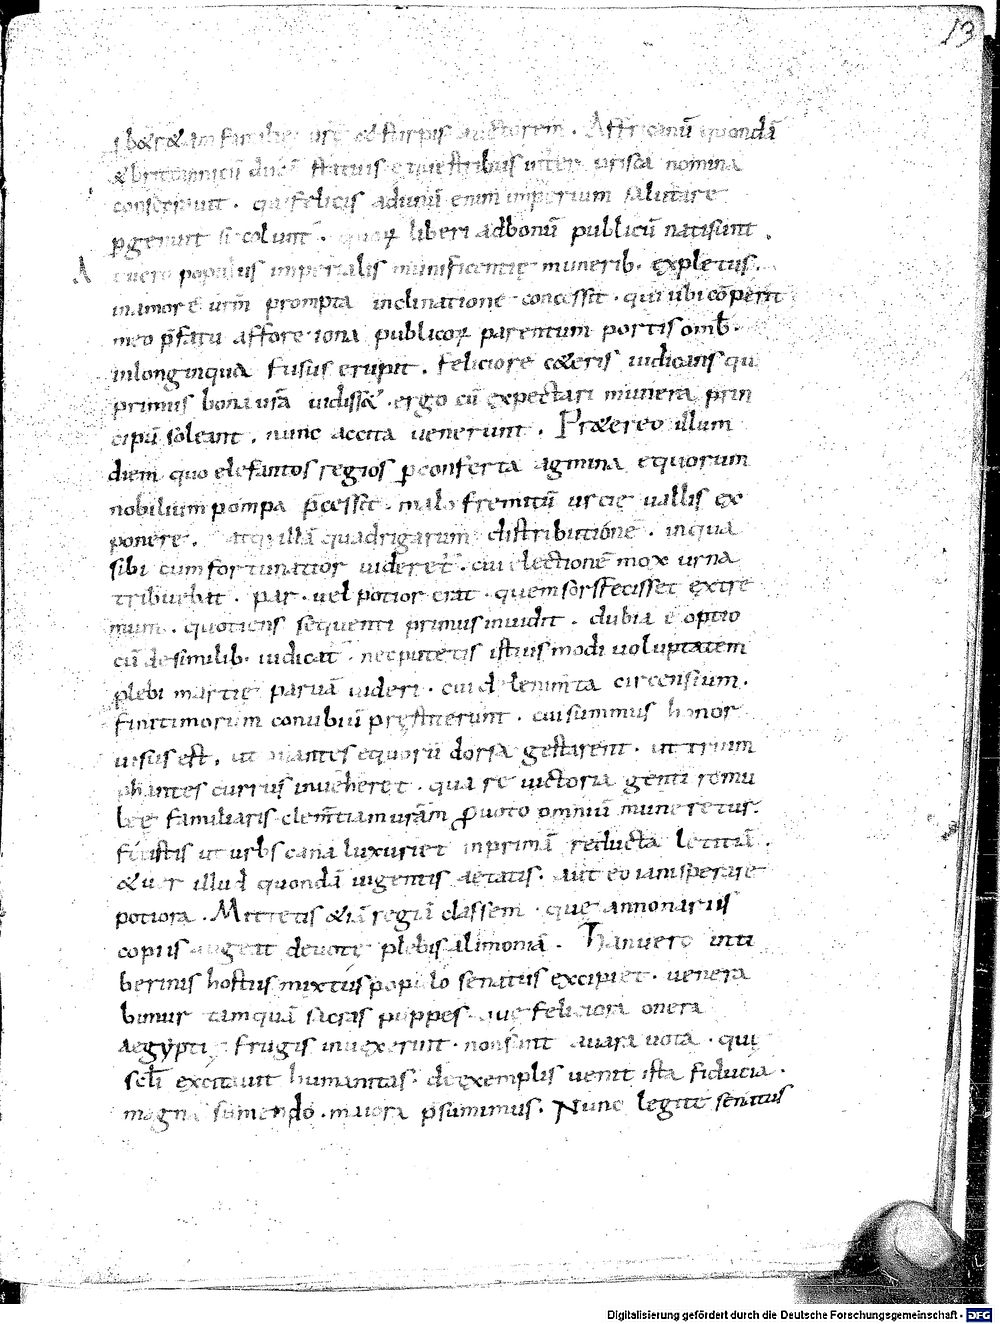 13
& stirpis auctorem . Affricanū quondā
&brittannicū ducē statuis equestribus inter prisca nomina
consecrauit . qui felicis adunū enim imperium salutare
ꝑgerunt si colunt . quoꝝ liberi adbonū publicū natisunt .
tuero populus imperialis munificentię munerib. expletus .
inamorē urm prompta inclinatione concessit . qui ubi cōperit
meo p̄fatu affore iona publicoꝝ parentum portis omb̄ .
inlonginqua fusus erupit . feliciorē c&eris iudicans qui
primus bona ur̄a uidiss& . ergo cū expectari munera prin
cipū soleant . nunc accita uenerunt . Pr&ereo illum
diem quo elefantos regios ꝑconferta agmina equorum
nobilium pompa p̄cessit . malo fremitū urcię uallis ex
ponere . atqꝫ illā quadrigarum distributione . inqua
sibi cum fortunatior uideret . cui electionē mox urna
tribuebat . par . uel potior erat . quem sors fecisset extre
mum . quotiens sequenti primus inuidit . dubia ē optio
cū desimilib. iudicat . nec putetis istius modi uoluptatem
plebi martię paruā uideri . cui circensium .
finitimorum conubiū pręstiterunt . cui summus honor
uisus est . ut equorū dorsa gestarent . ut trium
phantes currus inueheret . qua re uictoria genti romu
leę familiaris clem̄tiam ur̄am ꝓuoto omniū muneretur .
fecistis ut urbs cana luxuriet inprimā reducta letitiā .
&uer illud quondā uigentis aetatis . aut eo iam sperare
potiora . Mittetis &iā regiā classem . que annonariis
copiis augeat deuotę plebis alimoniā . Hanuero inti
berinis hostiis mixtus populo senatus excipiet . venera
bimur tamquā sacras puppes . quę feliciora onera
aegypti frugis inuexerint . non sunt auara uota . quę
sc̄li excitauit humanitas . deexemplis uenit ista fiducia .
magna sumendo . maiora p̄sumimus . Nunc legite senatus
Digitalisierung gefördert durch die Deutsche Forschungsgemeinschaft - DFG